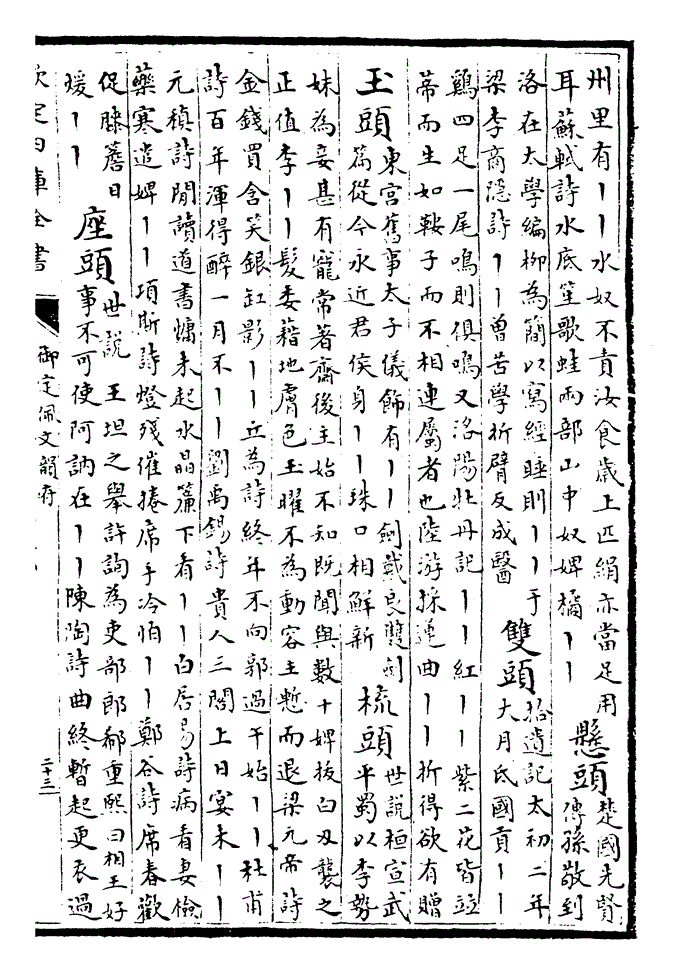 州里有丨丨水奴不責汝食歲上匹絹亦當足用
耳蘇軾詩水底笙歌蛙兩部山中奴婢橘丨丨
懸頭
楚國先賢
傳孫敬到
洛在太學編柳為簡以寫經睡則丨丨于
梁李商隱詩丨丨曾苦學折臂反成醫
雙頭
拾遺記太初二年
大月氏國貢丨丨
鷄四足一尾鳴則俱鳴又洛陽牡丹記丨丨紅丨丨紫二花皆竝
蒂而生如鞍子而不相連屬者也陸游採蓮曲丨丨折得欲有贈
玉頭
東宮舊事太子儀飾有丨丨劍戴良雙劍
篇從今永近君侯身丨丨珠口相鮮新
梳頭
世說桓宣武
平蜀以李勢
妹為妾甚有寵常著齋後主始不知既聞與數十婢拔白刃襲之
正值李丨丨髮委藉地膚色玉曜不為動容主慙而退梁元帝詩
金錢買含笑銀缸影丨丨丘為詩終年不向郭過午始丨丨杜甫
詩百年渾得醉一月不丨丨劉禹錫詩貴人三閣上日宴未丨丨
元稹詩閒讀道書慵未起水晶簾下看丨丨白居易詩病看妻檢
藥寒遣婢丨丨項斯詩燈殘催捲席手冷怕丨丨鄭谷詩席春歡
促膝簷日
煖丨丨
座頭
世說王坦之舉許詢為吏部郎郗重熙曰相王好
事不可使阿訥在丨丨陳陶詩曲終暫起更衣過
欽定四庫全書
御定佩文韻府
二十三